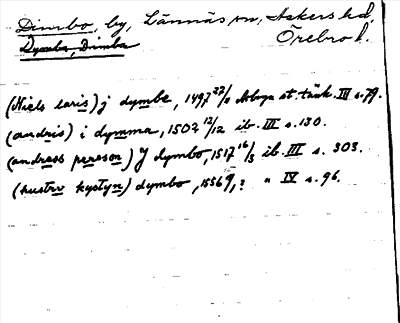 Dimbo, by, Lännäs sn, Askers hd,
Dymba, Dimba Örebro l.
(Niels laris) j dymbe, 1497 27/2 Arboga st. tänk. III s. 79.
(andris) i dymma, 1502 12/12 ib. III s. 130.
(andress persson) J dymbo, 1517 16/3 ib. III s. 303.
(hustrv kystyn) dymbo, 1556 9/? " IV s. 96.